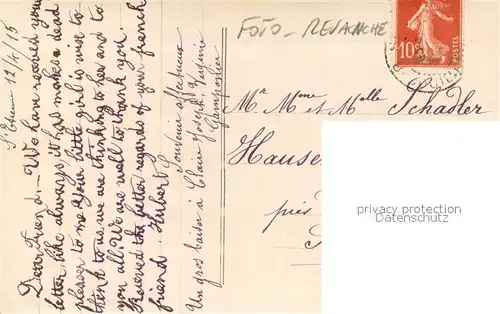 St Etienne 12/4/15
Dear Friend. – We have received your
letter like always it has makes a dead
pleaser to me your little girl is wish to
think to us, we are thinking to her and to
you all. We are well to thank you.
Reseived the better regards of your french
friend. Hubert
Souvenir affectueux
Un gros baiser à Claire Joseph
FOTO - REVANCHE
10c
POSTES
Mr Mme et Melle Schadler
Hause
près
privacy protection
www.oldthing.de